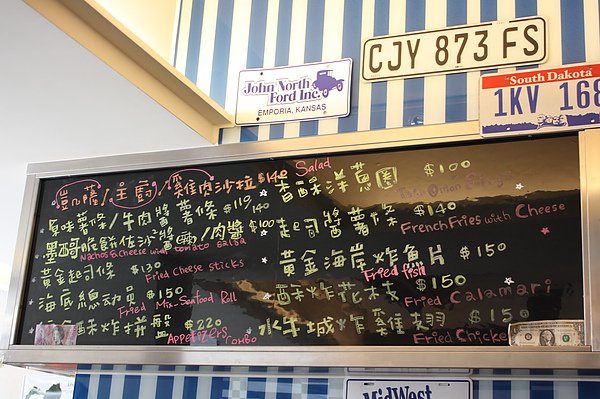 John North
Ford Inc.
EMPORIA, KANSAS
CJY 873 FS
South Dakota
1KV 168
凱薩/主廚/雞肉沙拉 $140 Salad
原味薯條/牛肉醬薯條 $119/140
墨西哥脆餅佐沙沙醬/肉醬 $100
Nachos & Cheese with tomato salsa
黃金起司條 $130
Fried Cheese sticks
海底總動員 $150
Fried Mix-Seafood Roll
酥炸拼盤 $220
Appetizers Combo
香酥洋蔥圈 $100
起司醬薯條 $140
French Fries with Cheese
黃金海岸炸魚片 $150
Fried fish
酥炸花枝 $150
Fried Calamari
水牛城炸雞翅 $150
Fried Chicken
MidWest